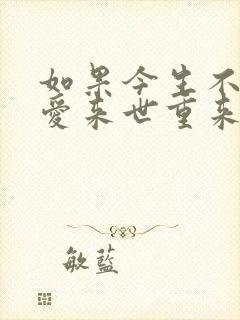 如果今生不
爱来世重来
敏蓝